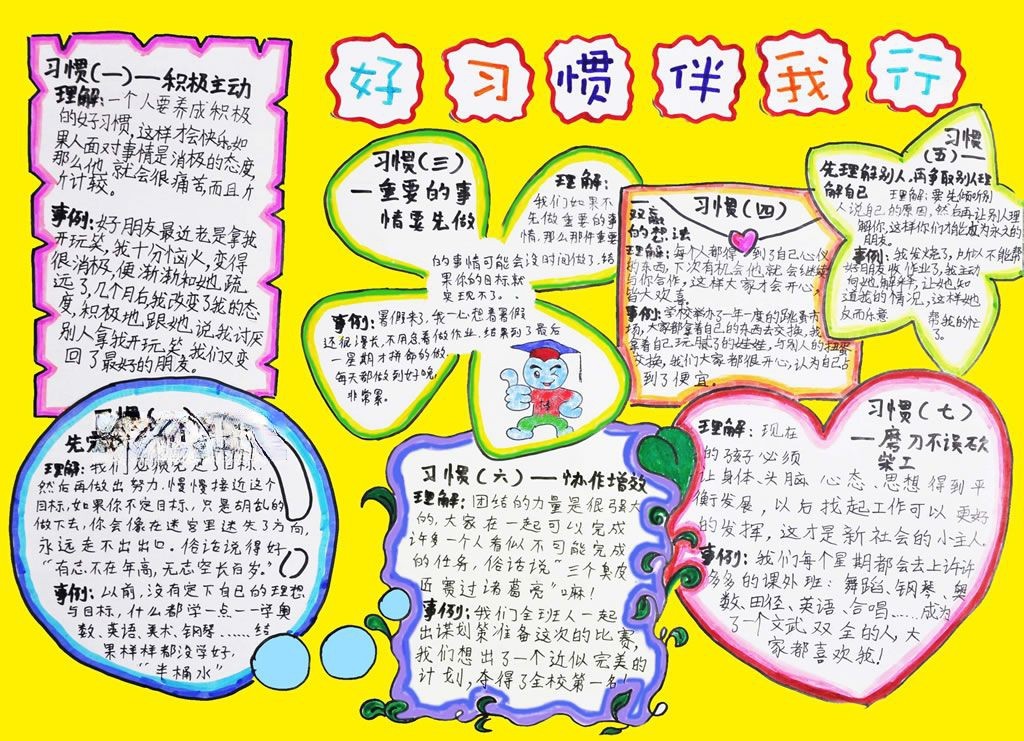 好习惯伴我行
习惯(一)—积极主动
理解:一个人要养成积极
的好习惯,这样才会快乐,如
果人面对事情是消极的态度,
那么他,就会很痛苦而且斤
斤计较。
事例:好朋友最近老是拿我
开玩笑,我十分恼火,变得
很消极,便渐渐和她,疏
远了,几个月后,我改变了我的态
度,积极地,跟她,说,我讨厌
别人拿我开玩笑,我们又变
回了最好的朋友。
习惯(
先
理解:我们必须先定了目标,
然后再做出努力,慢慢接近这个
目标,如果你不定目标,只是胡乱的
做下去,你会像在迷宫里迷失了方向,
永远走不出出口。俗话说得好
“有志不在年高,无志空长百岁。”
事例:以前,没有定下自己的理想
与目标,什么都学一点一学奥
数、英语、美术、钢琴……结
果样样都没学好,
“半桶水”
习惯(三)
—重要的事
情要先做
理解:
我们如果不
先做重要的事
情,那么那件重要
的事情可能会没时间做了,结
果你的目标就
实现不了。
事例:暑假来了,我一心想着暑假
还很漫长,不用急着做作业,结果到了最后
一星期才拼命的做,
每天都做到好晚,
非常累。
习惯(四)
双赢
的想法
理解:每个人都得到了自己心仪
的东西,下次有机会他就会继续
与你合作,这样大家才会开心,
皆大欢喜。
事例:学校举办了一年度的跳蚤市
场,大家都拿着自己的东西去交换,我
拿着自己玩腻了的娃娃,与别人的扭蛋
交换,我们大家都很开心,认为自己占
到了便宜。
习惯
(五)—
先理解别人,再争取别人理
解自己
理解:要先倾听别
人说自己的原因,然后再让别人理
解你,这样你们才能成为永久的
朋友。
事例:我发烧了,所以不能帮
好朋友收作业了,我主动
向她,解释,让她知
道我的情况,这样她
反而乐意
帮我的忙
了。
习惯(六)—协作增效
理解:团结的力量是很强大
的,大家在一起可以完成
许多一个人看似不可能完成
的任务,俗话说“三个臭皮
匠赛过诸葛亮”嘛!
事例:我们全班人一起
出谋划策准备这次的比赛,
我们想出了一个近似完美的
计划,夺得了全校第一名!
习惯(七)
—磨刀不误砍
柴工
理解:现在
的孩子必须
让身体、头脑、心态、思想得到平
衡发展,以后找起工作可以更好
的发挥,这才是新社会的小主人。
事例:我们每个星期都会去上许许
多多的课外班:舞蹈、钢琴、奥
数、田径、英语、合唱……成为
了一个文武双全的人,大
家都喜欢我!